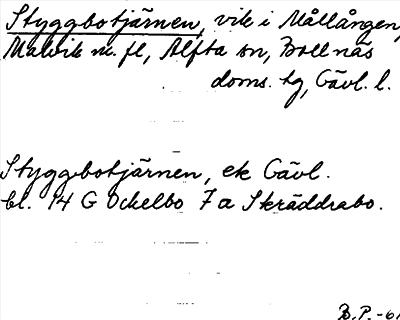 Styggbotjärnen, vik i Mållången,
Malvik m. fl, Alfta sn, Bollnäs
doms. hg, Gävl. l.
Styggbotjärnen, ek Gävl.
bl. 14 G Ockelbo 7 a Skräddrabo.
B.P. -61